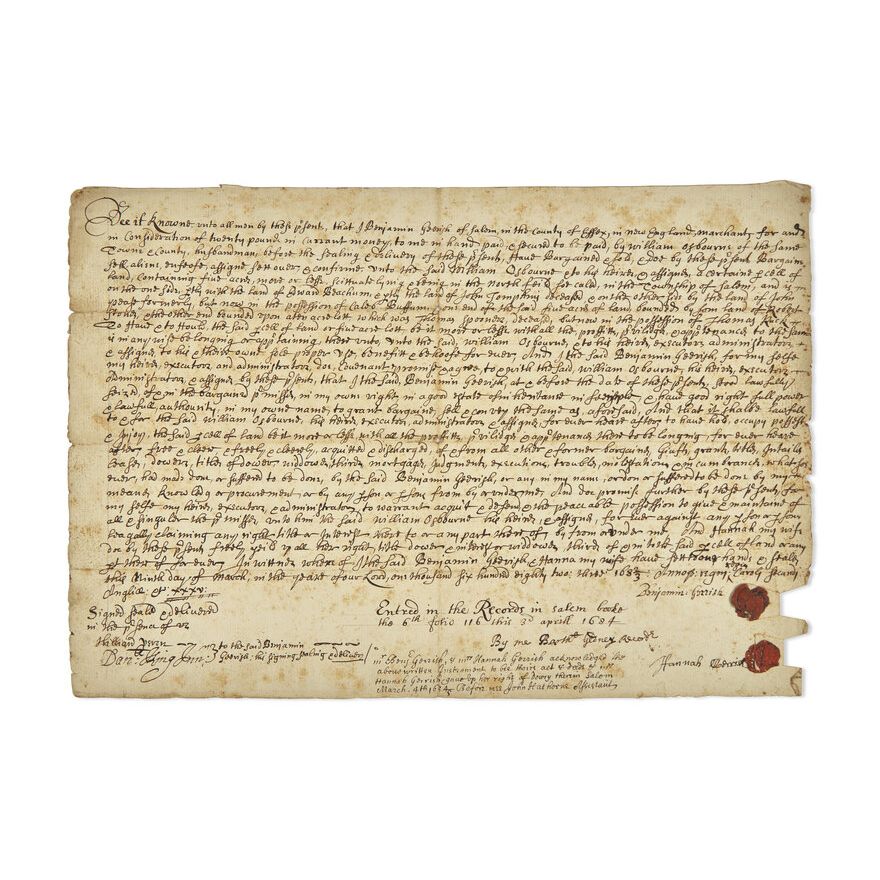 Bee it Knowne unto all men by these p'sents, that I Benjamin Gerrish of Salem, in the County of Essex, in new England marchant, for and
in Consideration of twenty pound in currant money, to me in hand paid, & secured to be paid, by William Osbourne of the same
Towne & County, husbandman, before the sealing & delivery of these p'sents, Have Bargained & sold, & doe by these p'sents Bargaine
sell aliene, enfeofe, assigne sett over & confirme unto the said William Osbourne & to his heires & assignes, a certaine p'cell of
land, containing five acres more or less, scittuate lying & being in the North feild so cald, in the Township of Salem, and is
on the one side with the land of Edward Beachum, & the land of John Tompkins deceased & on the other side by the land of John
pease formerly, but now in the possession of Caleb Buffum, & on end of the said five acres of land bounded by som land of Robert
& the other end bounded upon a ten acre lott which was Thomas Spooners, deceased, but now in the possession of Thomas
To Have & to Hould, the said p'cell of land or five acre lott be it more or less with all the proffitts, p'viledges & apptenances to the same
is in any wise belonging or appertaining there unto unto the said, William Osbourne, & to his heires, executors administrators
& assignes, to his & theire owne sole proper use benefitt & behoofe for ever, And I the said Benjamin Gerrish, for my selfe
my heires, executors and administrators, doe, Covenant promise & agree, to & with the said William Osbourne, his heires, executors
Administrators & assignes by these p'sents, that I the said, Benjamin Gerrish, at & before the date of these p'sents, stood lawfully
seized of & in the bargained p'misses, in my own right in a good estate of inheritance in fee simple & have good right full power
& lawfull authourity, in my owne name, to grant bargaine, sell & convey the same as aforesaid, And that it shalbe lawfull
to & for the said William Osbourne, his heires, executors, administrators & assignes, for ever heare after to have hold, occupy possess
& injoy, the said p'cell of land be it more or less, with all the proffitts, p'viledges & apptenances there to belonging, for ever heare
after free & cleer & freely & cleerely, acquitted & discharged, of & from all other & former bargaines, Guifts, grants, titles, Intailes
leases, dowers, titles of dower widdows thirds, mortgages, Judgments, executions, troubles, molestations & incumbrances, what soe
ever, had made don or suffered to be done, by the said Benjamin Gerrish, or any in my name, or don or suffered to be done by my
meanes knowledg or procurement or by any p'son or p'sons from by or under me. And doe promise further by these p'sents for
my selfe my heires, executors & administrators, to warrant acquit & defend the peaceable possession to give & maintaine of
all & singuler the p'misses unto him the said William Osbourne his heires, & assignes, for ever against any p'son or p'sons
leagally claiming any right title or interest here to or any part there of by from or under me. And Hannah my wife
doe by these p'sents freely yeild up all her right title dower & interest or widdows, thirds of & in the said p'cell of land or any
pt there of for ever. In wittnes where of I the said Benjamin Gerrish & Hanna my wife have sett our hands & seales
this Ninth day of March, in the yeare of our Lord, one thousand six hundred eighty two: three 1682/3 Annoq: regni Regis Caroly secundy
Anglie &c xxxv:
Benjamin Gerrish
Signed seald & delivered
in the p'sence of us
William
Dan: King Jun: to the said Benjamin
Gerrish, his signing sealing & delivery
Entred in the Records in Salem booke
the 6th folio 116 this 3d aprill 1684
By me Barth: Gedney Recordr
mr Benj: Gerrish, & mrs Hannah Gerrish acknowledged the
above written instrument to be theire act & deed & mrs
Hannah Gerrish gave up her right of dowry therein Salem
March. 4th 1683/4 Before mee John Hathorne Assistant
Hannah Gerrish